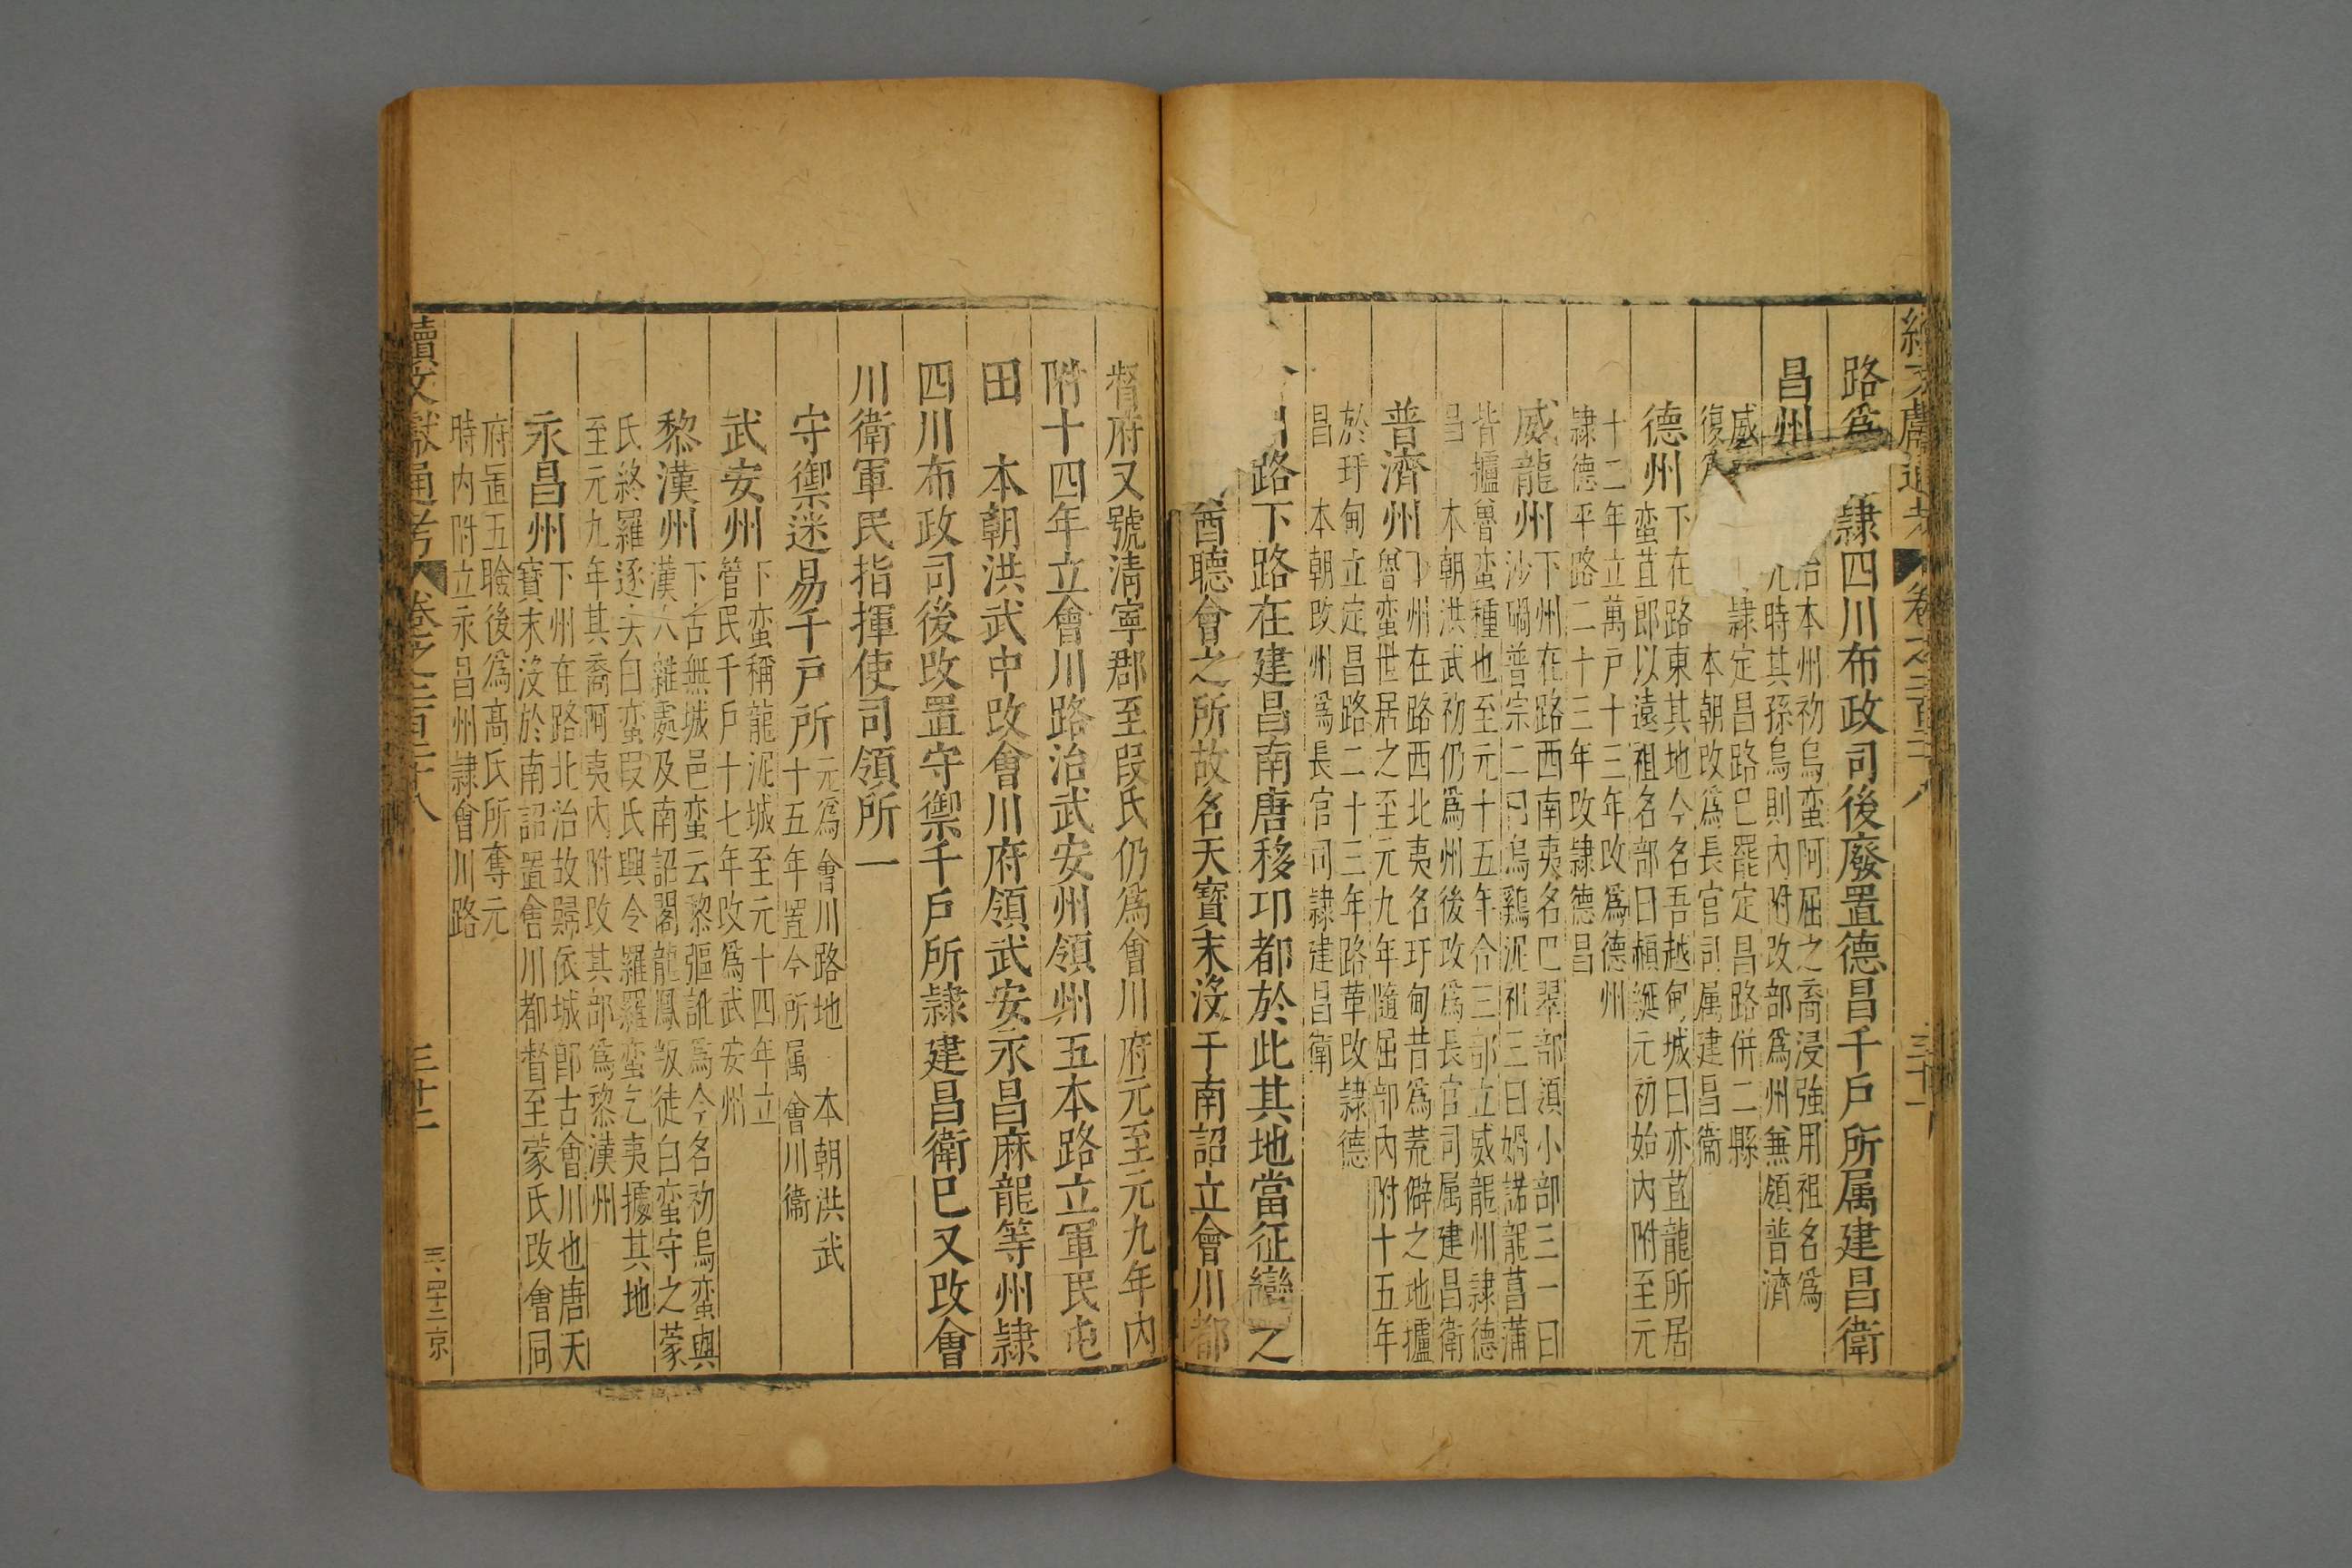 路爲隷四川布政司後廢置德昌千戶所属建昌衛
昌州 治本州初烏蛮阿屈之裔浸強用祖名爲
元時其孫烏則內附改部爲州兼領普濟
威 隷定昌路已罷定昌路併二縣
復 本朝改爲長官司属建昌衛
德州 下在路東其地今名吾越甸城曰亦苴龍所居
蛮苴郎以遠祖名部曰頳綖元初始內附至元
十二年立萬戶十三年改爲德州
隷德平路二十三年改隷德昌
威龍州 下州在路西南夷名巴翠部湏小部三一曰
沙碢普宗二曰烏鷄泥祖三曰媧諾龍菖蒲
皆攎魯蛮種也至元十五年合三部立威龍州隷德
昌 本朝洪武初仍爲州後改爲長官司属建昌衛
普濟州 下州在路西北夷名玗甸昔爲荒僻之地攎
魯蛮世居之至元九年隨屈部內附十五年
於玗甸立定昌路二十三年路革改隷德
昌 本朝改州爲長官司隷建昌衛
路下路在建昌南唐移卭都於此其地當征蠻之
酋聽會之所故名天寳末没于南詔立會川都
督府又號清寧郡至段氏仍爲會川府元至元九年內
附十四年立會川路治武安州領州五本路立軍民屯
田 本朝洪武中改會川府領武安永昌麻龍等州隷
四川布政司後改置守禦千戶所隷建昌衛已又改會
川衛軍民指揮使司領所一
守禦迷易千戶所 元爲會川路地 本朝洪武
十五年置今所属會川衛
武安州 下蛮稱龍泥城至元十四年立
管民千戶十七年改爲武安州
黎漢州 下古無城邑蛮云黎彄訛爲今名初烏蛮與
漢人雜處及南詔閣龍鳳叛徒白蛮守之蒙
氏終羅逐去白蛮段氏興令羅羅蛮乞夷據其地
至元九年其裔阿夷內附改其部爲黎漢州
永昌州 下州在路北治故歸依城卽古會川也唐天
寳末没於南詔置會川都督至蒙氏改會同
府置五瞼後爲髙氏所奪元
時內附立永昌州隷會川路
續文獻通考 卷之二百三十八 三十二